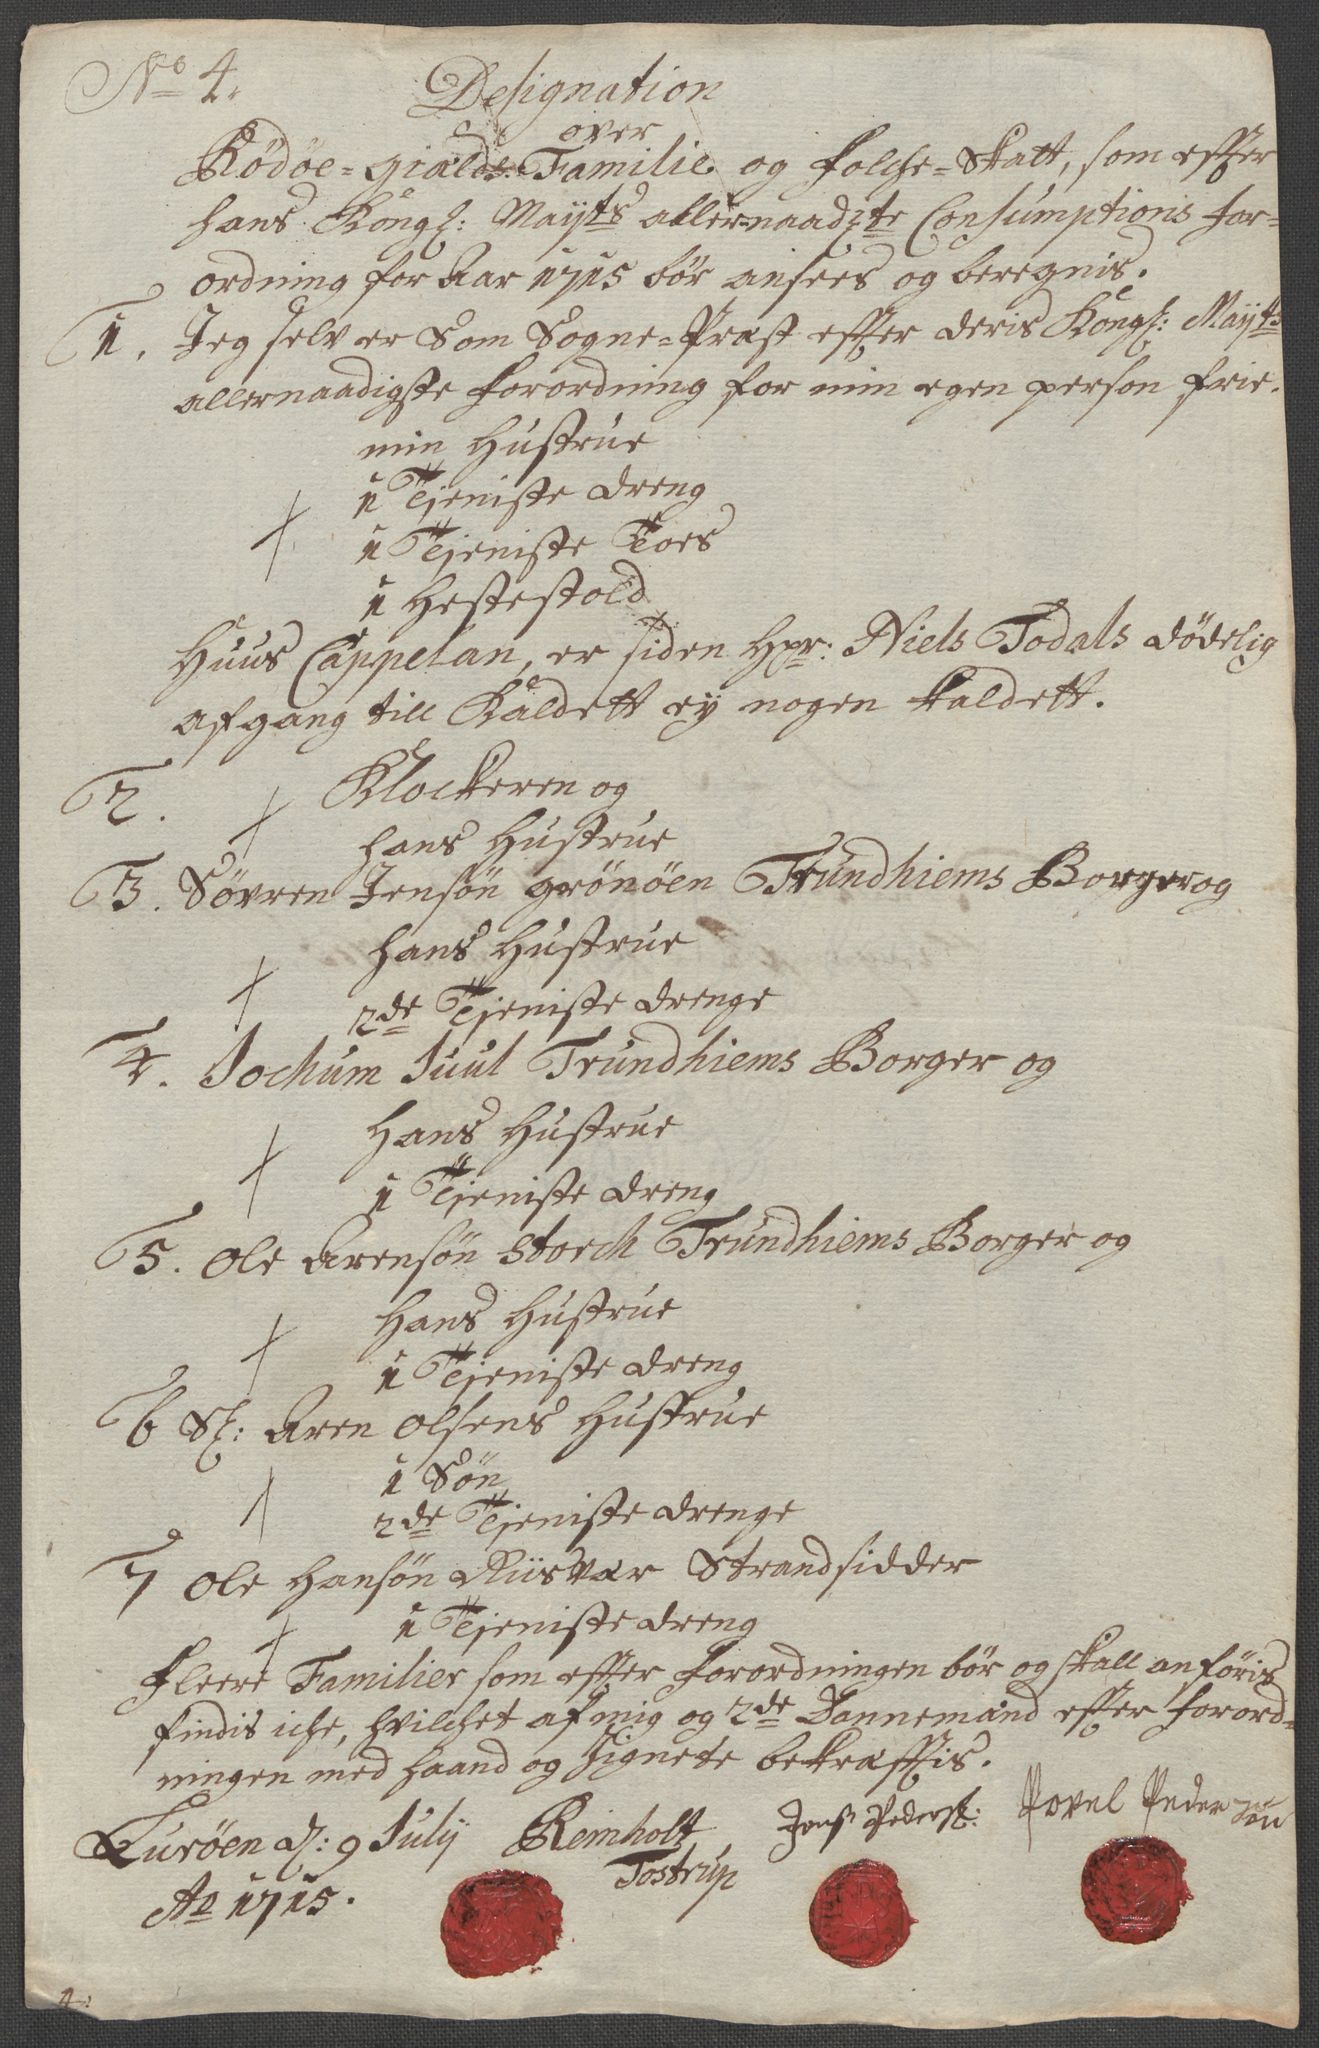 No 4.
Designation
over
Rödöe-gields Familie og Folche-Skatt, som effter
hans Kongl: Mayts allernaadigste Consumptions For-
ordning for Aar 1715 bör ansees og beregnis.
1. Jeg selv er Som Sogne-Præst effter deris Kongl: Mayts
allernaadigste Forordning for min egen person frie.
min Hustrue
1 Tjeniste dreng
1 Tjeniste Töes
1 Hestestold
Huus Cappelan, er siden Hr: Niels Todals dödelig
afgang till Kaldett ey nogen kaldett.
2. Klockeren og
hans Hustrue
3. Sövren Jensön grönöen Trundhiems Borger og
hans Hustrue
2de Tjeniste drenge
4. Jochum Juul Trundhiems Borger og
Hans Hustrue
1 Tjeniste dreng
5. Ole Arensön Storch Trundhiems Borger og
Hans Hustrue
1 Tjeniste dreng
6 Sl: Aren Olsens Hustrue
1 Sön
2de Tjeniste drenge
7 Ole Hansön Riisvær Strandsidder
1 Tjeniste dreng
Fleere Familier som effter Forordningen bör og skall anföris
findis iche, hvilchet af mig og 2de Dannemænd effter Forord-
ningen med haand og Signete bekræfftis.
Luröen d: 9 Julij
Ao 1715.
Reinholt
Tostrup
Jens Peders:
Povel Peder sön
4.